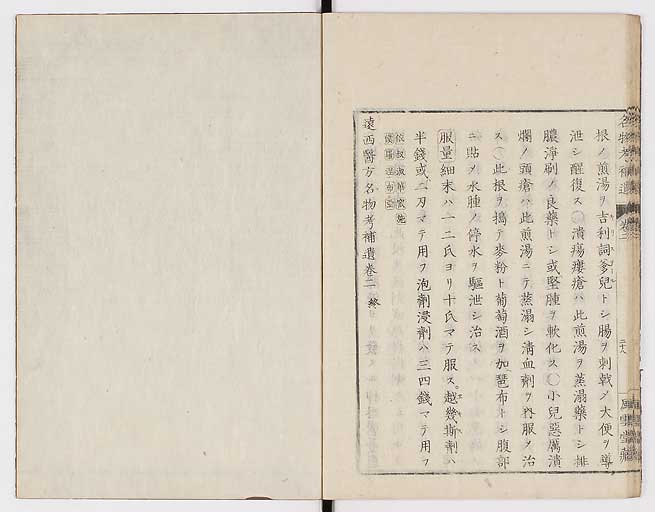 根ノ煎湯ヲ吉利詞爹兒トシ腸ヲ刺戟ノ大便ヲ導
泄シ醒復ス○潰瘍瘻瘡ハ此煎湯ヲ蒸溻藥トシ排
膿淨刷ノ良藥トシ或堅腫ヲ軟化ス○小兒惡厲潰
爛ノ頭瘡ハ此煎湯ニテ蒸溻シ淸血劑ヲ內服ノ治
ス○此根ヲ搗テ麥粉ト葡萄酒ヲ加琶布トシ腹部
ニ貼ノ水腫ノ停水ヲ驅泄シ治ス
服量細末ハ一二氏ヨリ十氏マテ服ス越幾斯劑ハ
半錢或二刃マテ用フ泡劑浸劑ハ三四錢マテ用フ
遠西醫方名物考補遺卷二終
名物考補遺 卷二 二十八 風雲堂藏